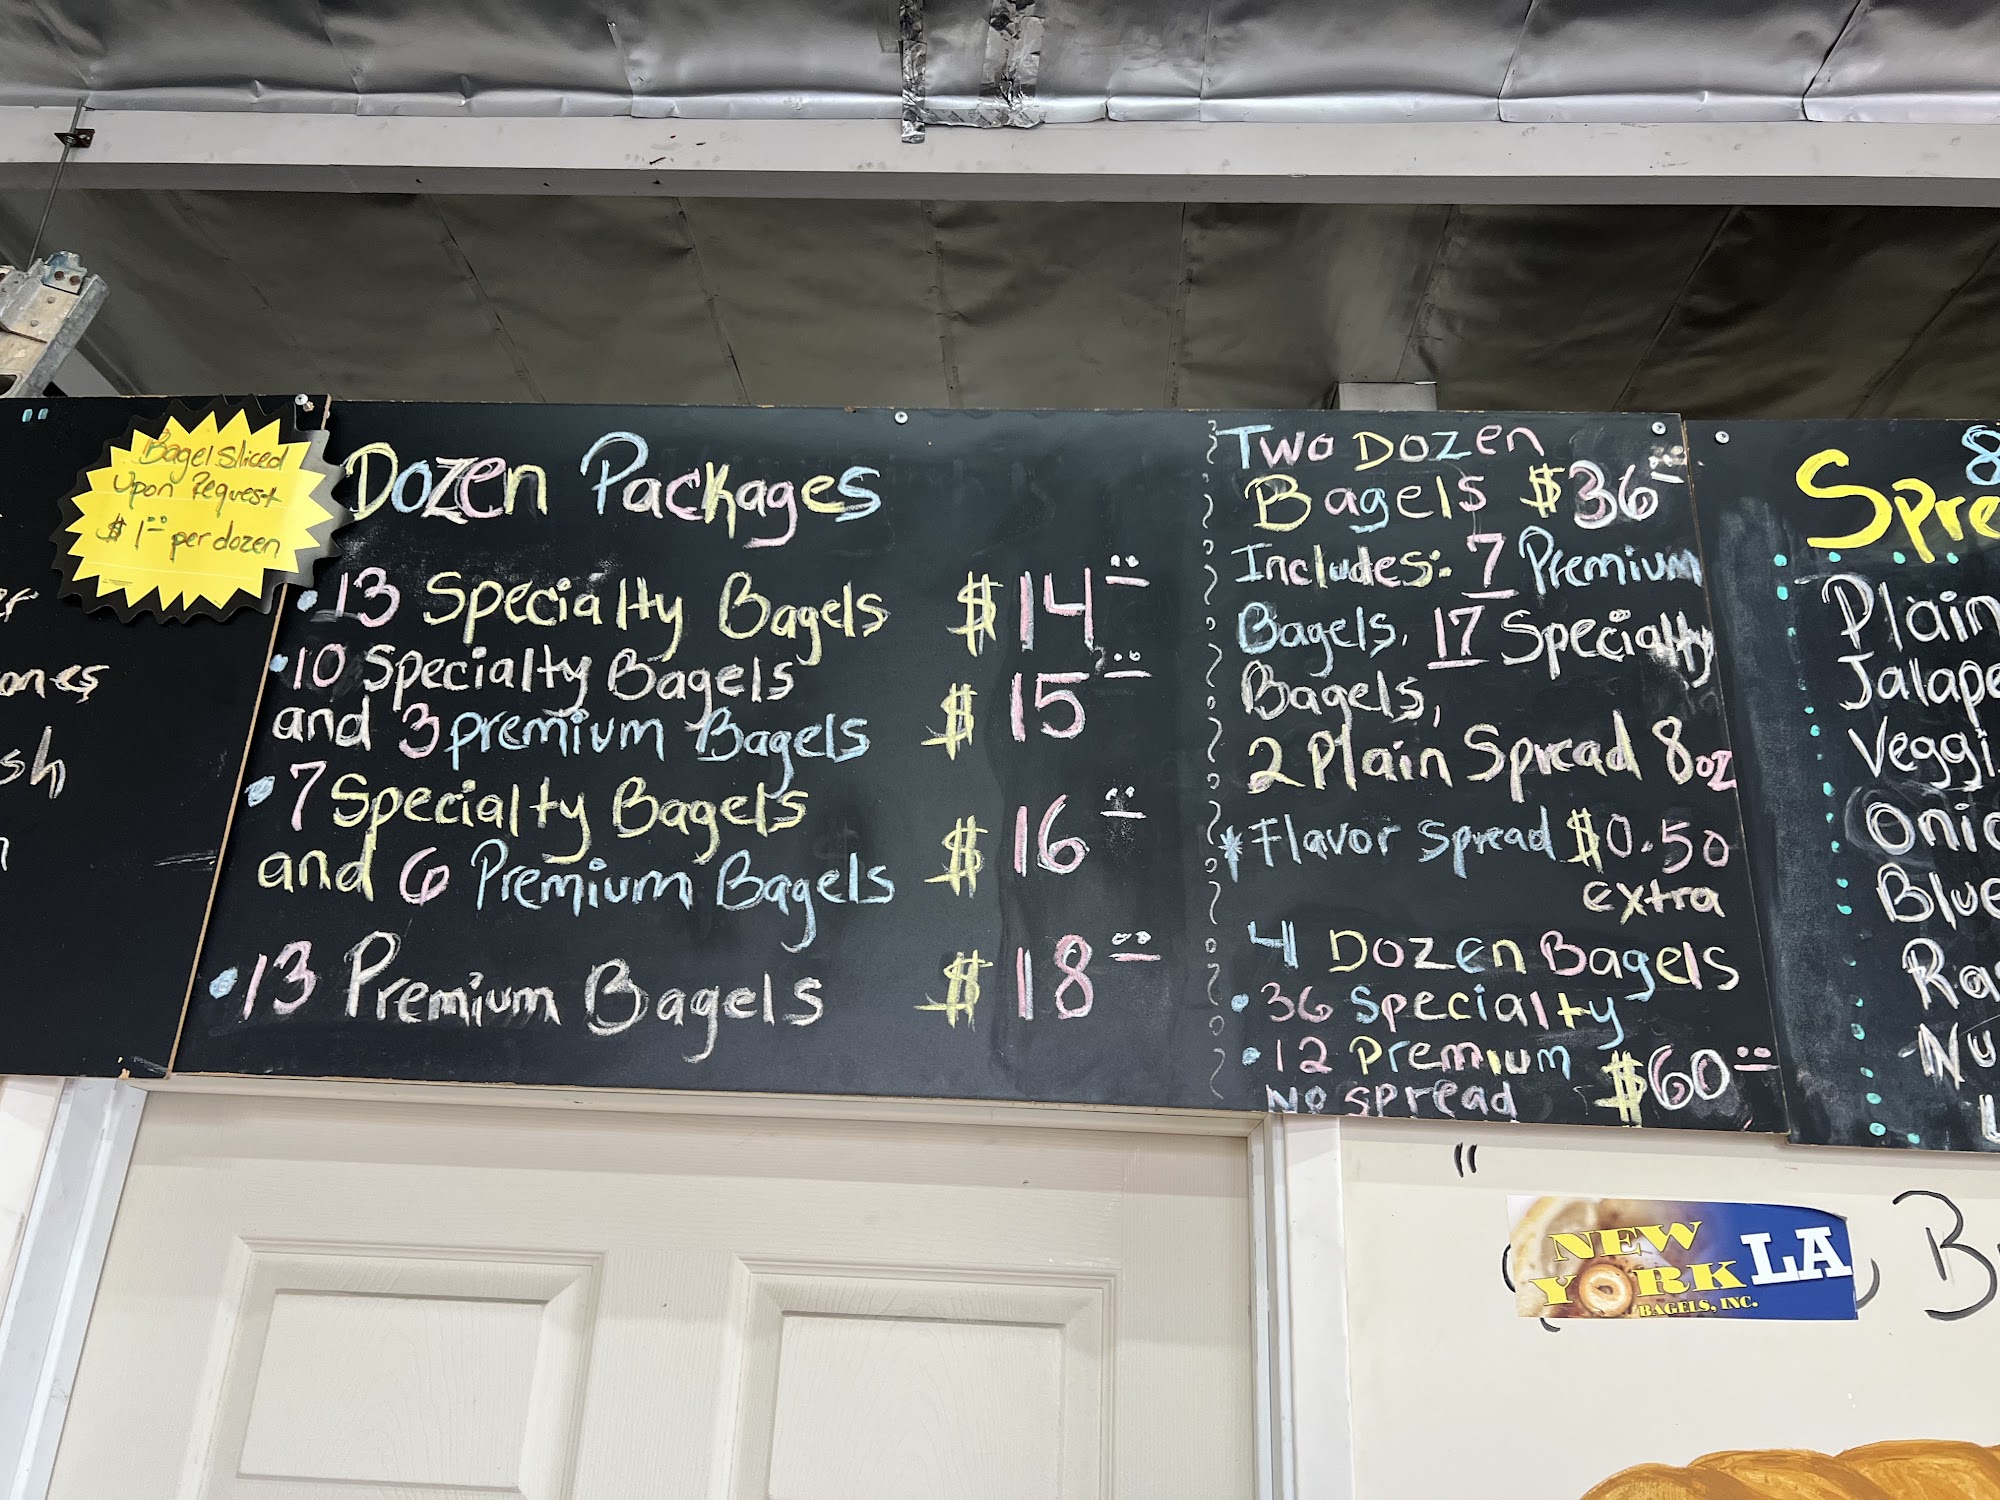 Bagel sliced
Upon Request
$1.00 per dozen
Dozen Packages
• 13 Specialty Bagels $14.00
• 10 Specialty Bagels
and 3 premium Bagels $15.00
• 7 Specialty Bagels
and 6 Premium Bagels $16.00
• 13 Premium Bagels $18.00
Two Dozen
Bagels $36.00
Includes: 7 Premium
Bagels, 17 Specialty
Bagels,
2 Plain Spread 8oz
* Flavor Spread $0.50
extra
4 Dozen Bagels
• 36 Specialty
• 12 Premium
No spread $60.00
8
Spre
Plain
Jalape
Veggi
Onio
Blue
Ra
Nu
NEW
YORK LA
BAGELS, INC.
B